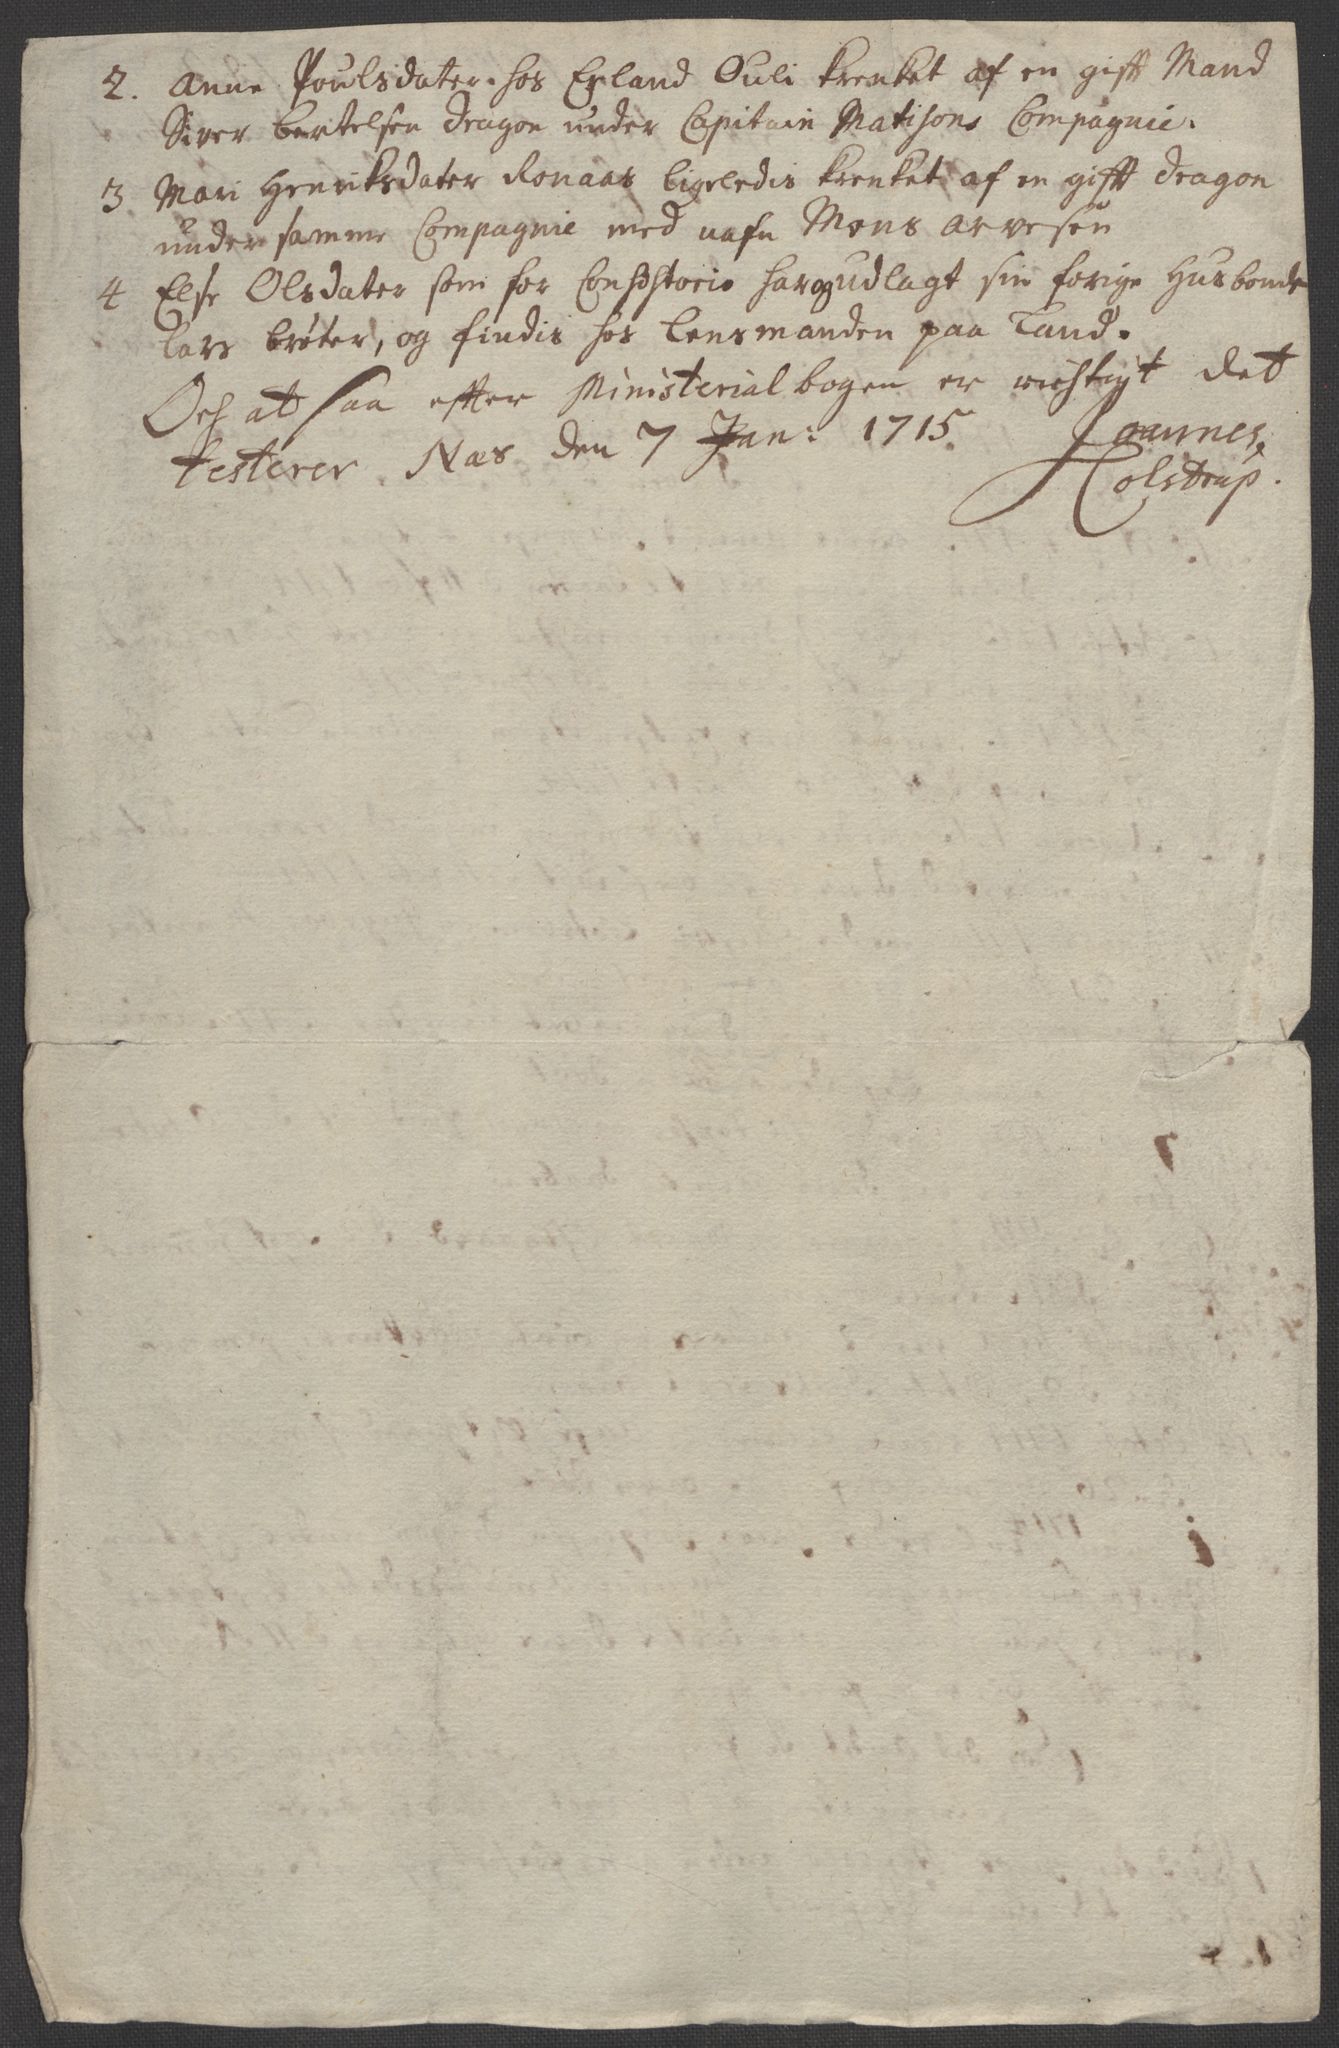 2. Anne Poulsdater hos Erland Ouli krenket af en gifft Mand
Siver bertelsen dragon under Capitain Matisons Compagnie.
3 Mari Henriksdater Ronaas ligeledis krenket af en gifft dragon
under samme Compagnie med nafn Mons arvesen
4 Else Olsdater som for Consistorio har udlagt sin forige Husbonde
Lars brøter, og findis hos Lensmanden paa Land.
Och at saa effter Ministerial bogen er richtigt det
testerer Næs den 7 Jan: 1715 Joannes
Colstrup.